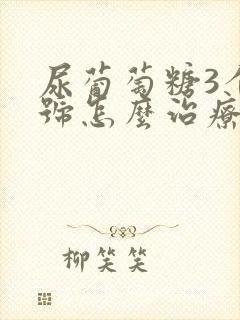 尿葡萄糖3个
号怎麼治療
柳笑笑